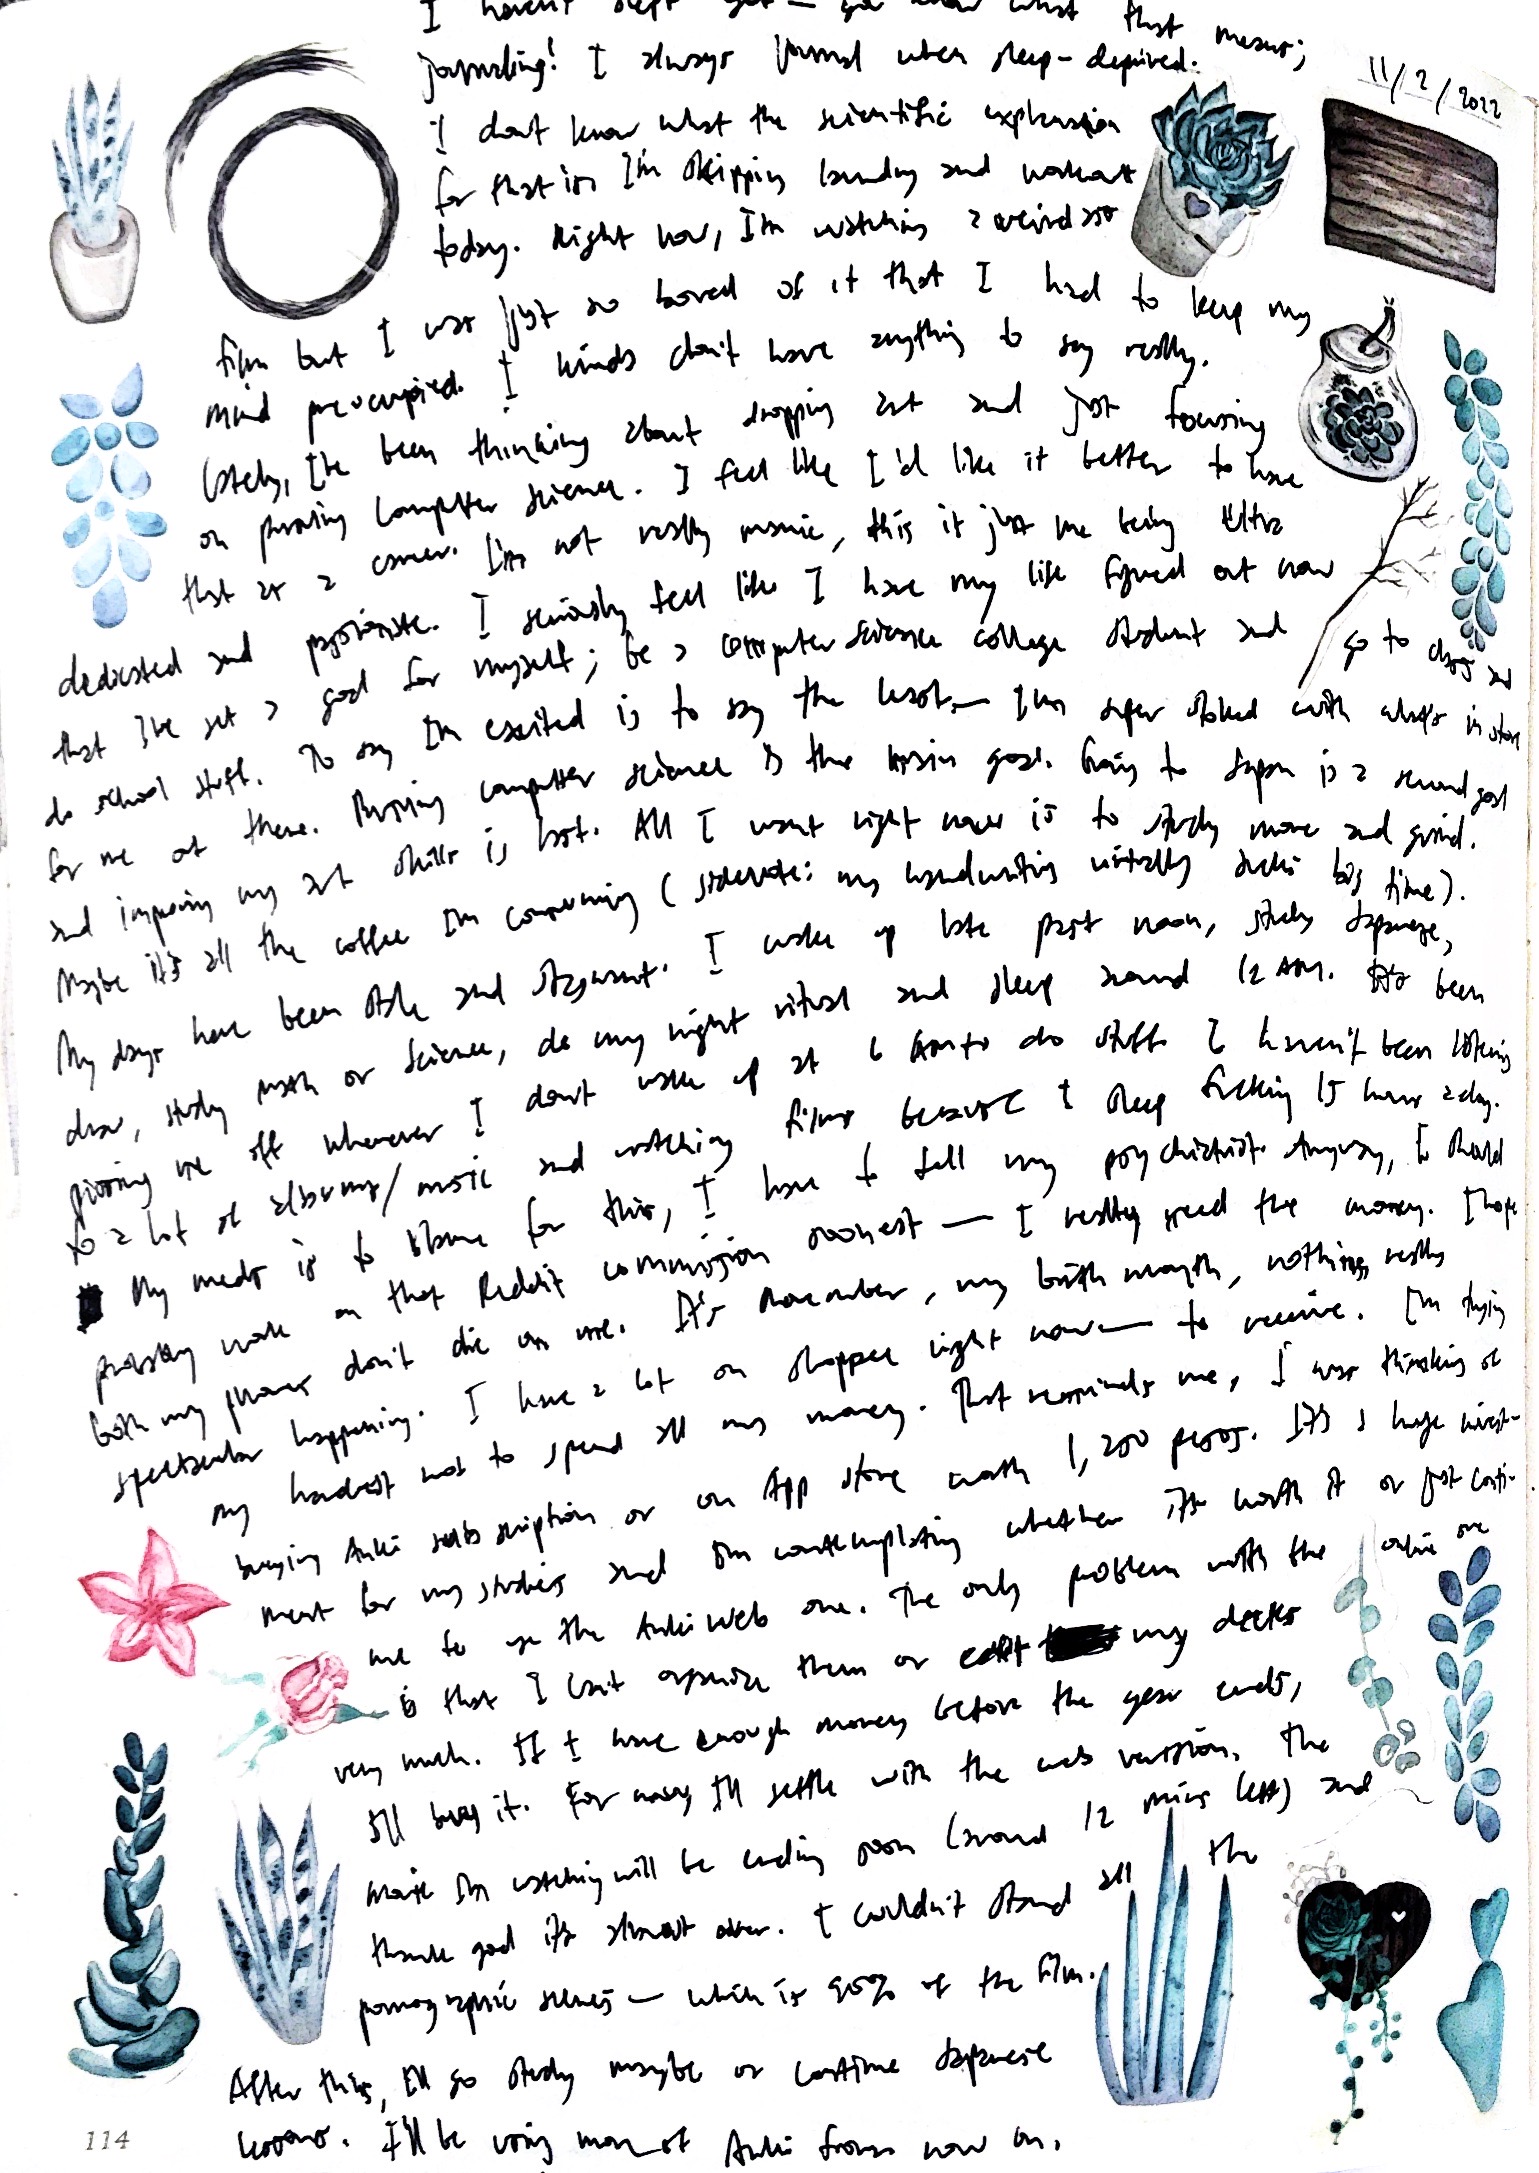 I haven't slept yet — you know what that means;
11/2/2022
journaling! I always journal when sleep-deprived.
I don't know what the scientific explanation
for that is. I'm skipping laundry and workout
today. Right now, I'm watching a weird ass
film but I was just so bored of it that I had to keep my
mind preoccupied. I kinda don't have anything to say really.
Lately, I've been thinking about dropping art and just focusing
on pursuing computer science. I feel like I'd like it better to have
that as a career. I'm not really manic, this is just me being ultra
dedicated and passionate. I seriously feel like I have my life figured out now
that I've set a goal for myself; be a computer science college student and go to class and
do school stuff. To say I'm excited is to say the least — I'm super stoked with what's in store
for me out there. Pursuing computer science is the main goal. Going to Japan is a second goal
and improving my art skills is last. All I want right now is to study more and grind.
Maybe it's all the coffee I'm consuming (sidenote: my handwriting virtually sucks big time).
My days have been stale and stagnant. I wake up late past noon, study Japanese,
draw, study math or science, do my night ritual and sleep around 12 AM. It's been
pissing me off whenever I don't wake up at 6 AM to do stuff. I haven't been listening
to a lot of albums/music and watching films because I sleep fucking 15 hours a day.
My meds is to blame for this, I have to tell my psychiatrist. Anyway, I should
probably work on that Reddit commission soonest — I really need the money. I hope
both my phones don't die on me. It's November, my birth month, nothing really
spectacular happening. I have a lot on shopee right now — to receive. I'm trying
my hardest not to spend all my money. That reminds me, I was thinking of
buying Anki subscription or on App store worth 1,250 pesos. It's a huge invest-
ment for my studies and I'm contemplating whether it's worth it or just conti-
nue to use the Anki Web one. The only problem with the online one
is that I can't organize them or edit my decks
very much. If I have enough money before the year ends,
I'll buy it. For now, I'll settle with the web version. The
movie I'm watching will be ending soon (around 12 mins left) and
thank god it's almost over. I couldn't stand all the
pornographic scenes — which is 95% of the film.
After this, I'll go study maybe or continue Japanese
lessons. I'll be using more of Anki from now on.
114